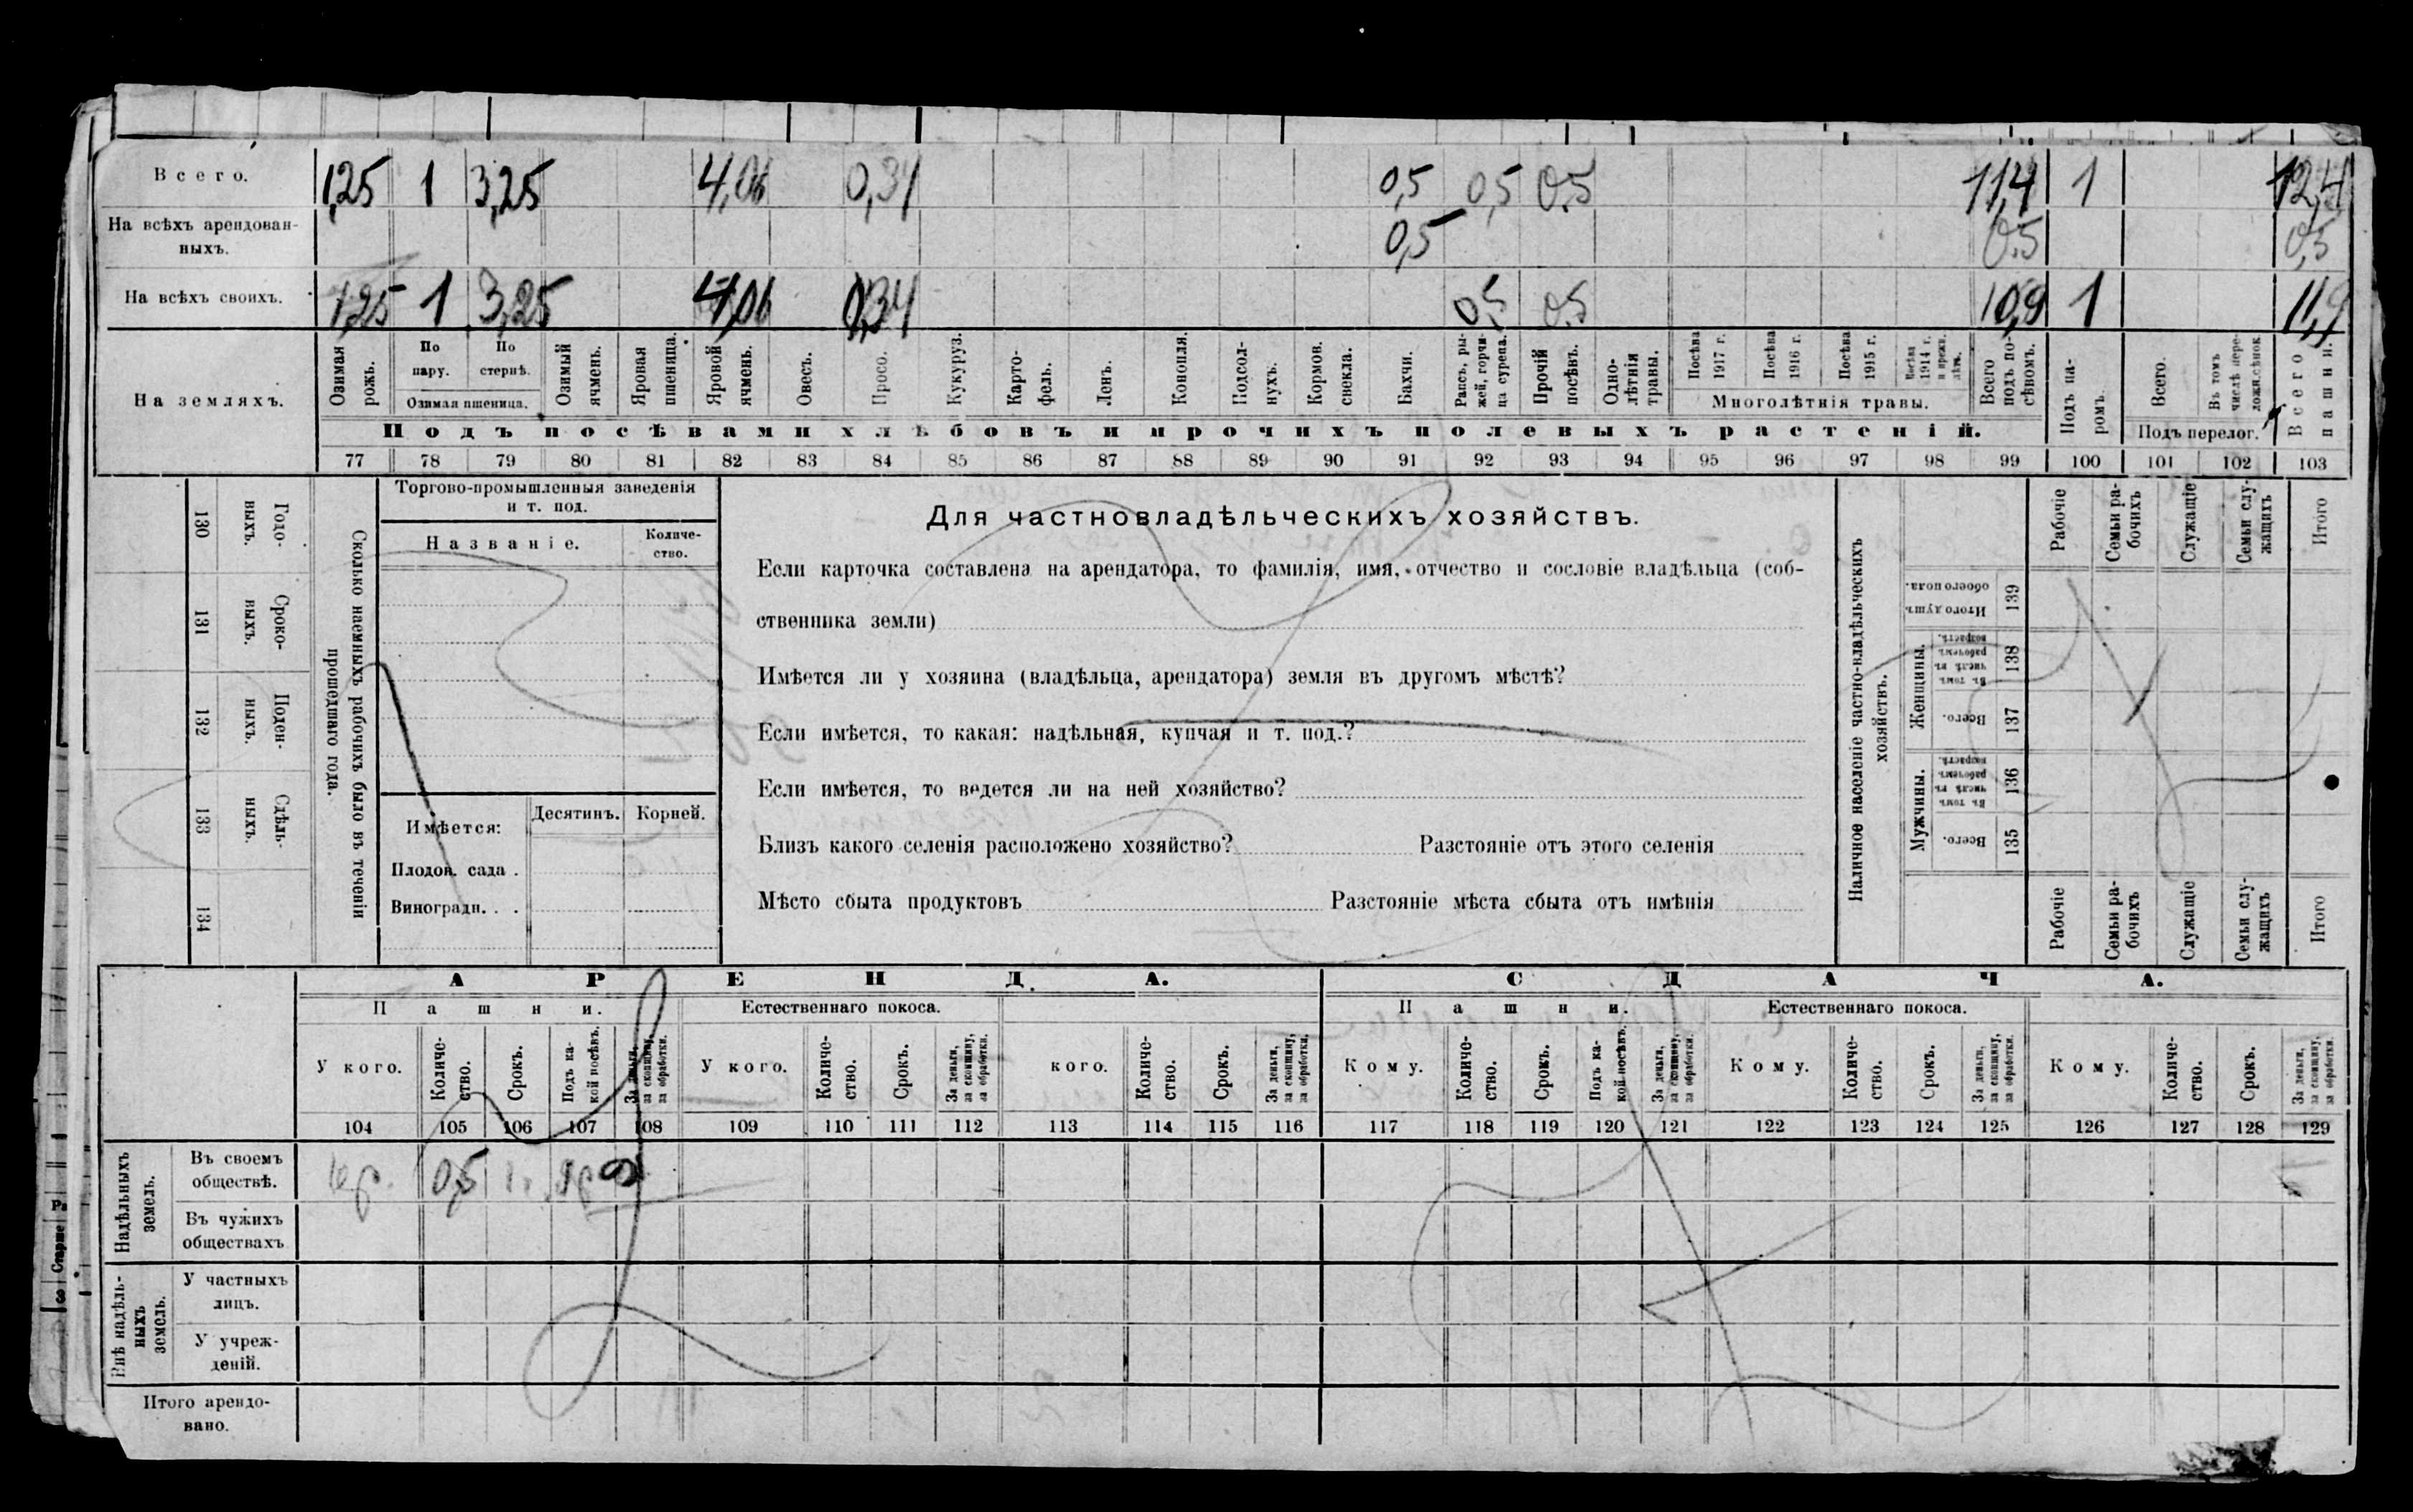 Всего. 1,25 1 3,25 4,06 0,34 0,5 0,5 0.5 11,4 1 12,4
На всѣхъ арендован-
ныхъ. 0,5 0.5 0,5
На всѣхъ своихъ. 1,25 1 3,25 4,06 0,34 0,5 0.5 10,9 1 11,9
На земляхъ.
Озимая рожь.
По пару.
По стернѣ.
Озимая пшеница.
Озимый ячмень.
Яровая пшеница.
Яровой ячмень.
Овесъ.
Просо.
Кукуруз.
Карто-
фель.
Ленъ.
Конопля.
Подсол-
нухъ.
Кормов. свекла.
Бахчи.
Рапсъ, ры-
жей, горчи-
ца сурепа.
Прочій посѣвъ.
Одно-
лѣтнія травы.
Посѣва 1917 г.
Посѣва 1916 г.
Посѣва 1915 г.
Посѣва 1914 г. и прежн. лѣтъ.
Многолѣтнія травы.
Всего подъ по-
сѣвомъ.
Подъ па-
ромъ.
Всего.
Въ томъ числѣ пере-
ложн. сѣнок.
Подъ перелог.
Всего пашни.
Подъ посѣвами хлѣбовъ и прочихъ полевыхъ растеній.
77 78 79 80 81 82 83 84 85 86 87 88 89 90 91 92 93 94 95 96 97 98 99 100 101 102 103
Годо-
выхъ.
130
Сроко-
выхъ.
131
Поден-
ныхъ.
132
Сдѣль-
ныхъ.
133
134
Сколько наемныхъ рабочихъ было въ теченіи
прошедшаго года.
Торгово-промышленныя заведенія
и т. под.
Названіе.
Количе-
ство.
Имѣется: Десятинъ. Корней.
Плодов. сада .
Виноградн. . .
Для частновладѣльческихъ хозяйствъ.
Если карточка составлена на арендатора, то фамилія, имя, отчество и сословіе владѣльца (соб-
ственника земли)
Имѣется ли у хозяина (владѣльца, арендатора) земля въ другомъ мѣстѣ?
Если имѣется, то какая: надѣльная, купчая и т. под.?
Если имѣется, то ведется ли на ней хозяйство?
Близъ какого селенія расположено хозяйство? Разстояніе отъ этого селенія
Мѣсто сбыта продуктовъ Разстояніе мѣста сбыта отъ имѣнія
Наличное населеніе частно-владѣльческихъ
хозяйствъ.
Рабочіе
Семьи ра-
бочихъ
Служащіе
Семьи слу-
жащихъ
Итого
Итого душъ обоего пола.
139
Женщины.
Въ томъ числѣ въ рабочемъ возрастѣ.
138
Всего.
137
Мужчины.
Въ томъ числѣ въ рабочемъ возрастѣ.
136
Всего.
135
Рабочіе
Семьи ра-
бочихъ
Служащіе
Семьи слу-
жащихъ
Итого
АРЕНДА. СДАЧА.
Пашни. Естественнаго покоса. Пашни. Естественнаго покоса.
У кого.
Количе-
ство.
Срокъ.
Подъ ка-
кой посѣвъ.
За деньги, за скопщину, за обработки.
У кого.
Количе-
ство.
Срокъ.
За деньги, за скопщину, за обработки.
кого.
Количе-
ство.
Срокъ.
За деньги, за скопщину, за обработки.
Кому.
Количе-
ство.
Срокъ.
Подъ ка-
кой посѣвъ.
За деньги, за скопщину, за обработки.
Кому.
Количе-
ство.
Срокъ.
За деньги, за скопщину, за обработки.
Кому.
Количе-
ство.
Срокъ.
За деньги, за скопщину, за обработки.
104 105 106 107 108 109 110 111 112 113 114 115 116 117 118 119 120 121 122 123 124 125 126 127 128 129
Надѣльныхъ
земель.
Въ своемъ
обществѣ. кр. 0,5
Въ чужихъ
обществахъ
Внѣ надѣль-
ныхъ
земель.
У частныхъ
лицъ.
У учреж-
деній.
Итого арендо-
вано.